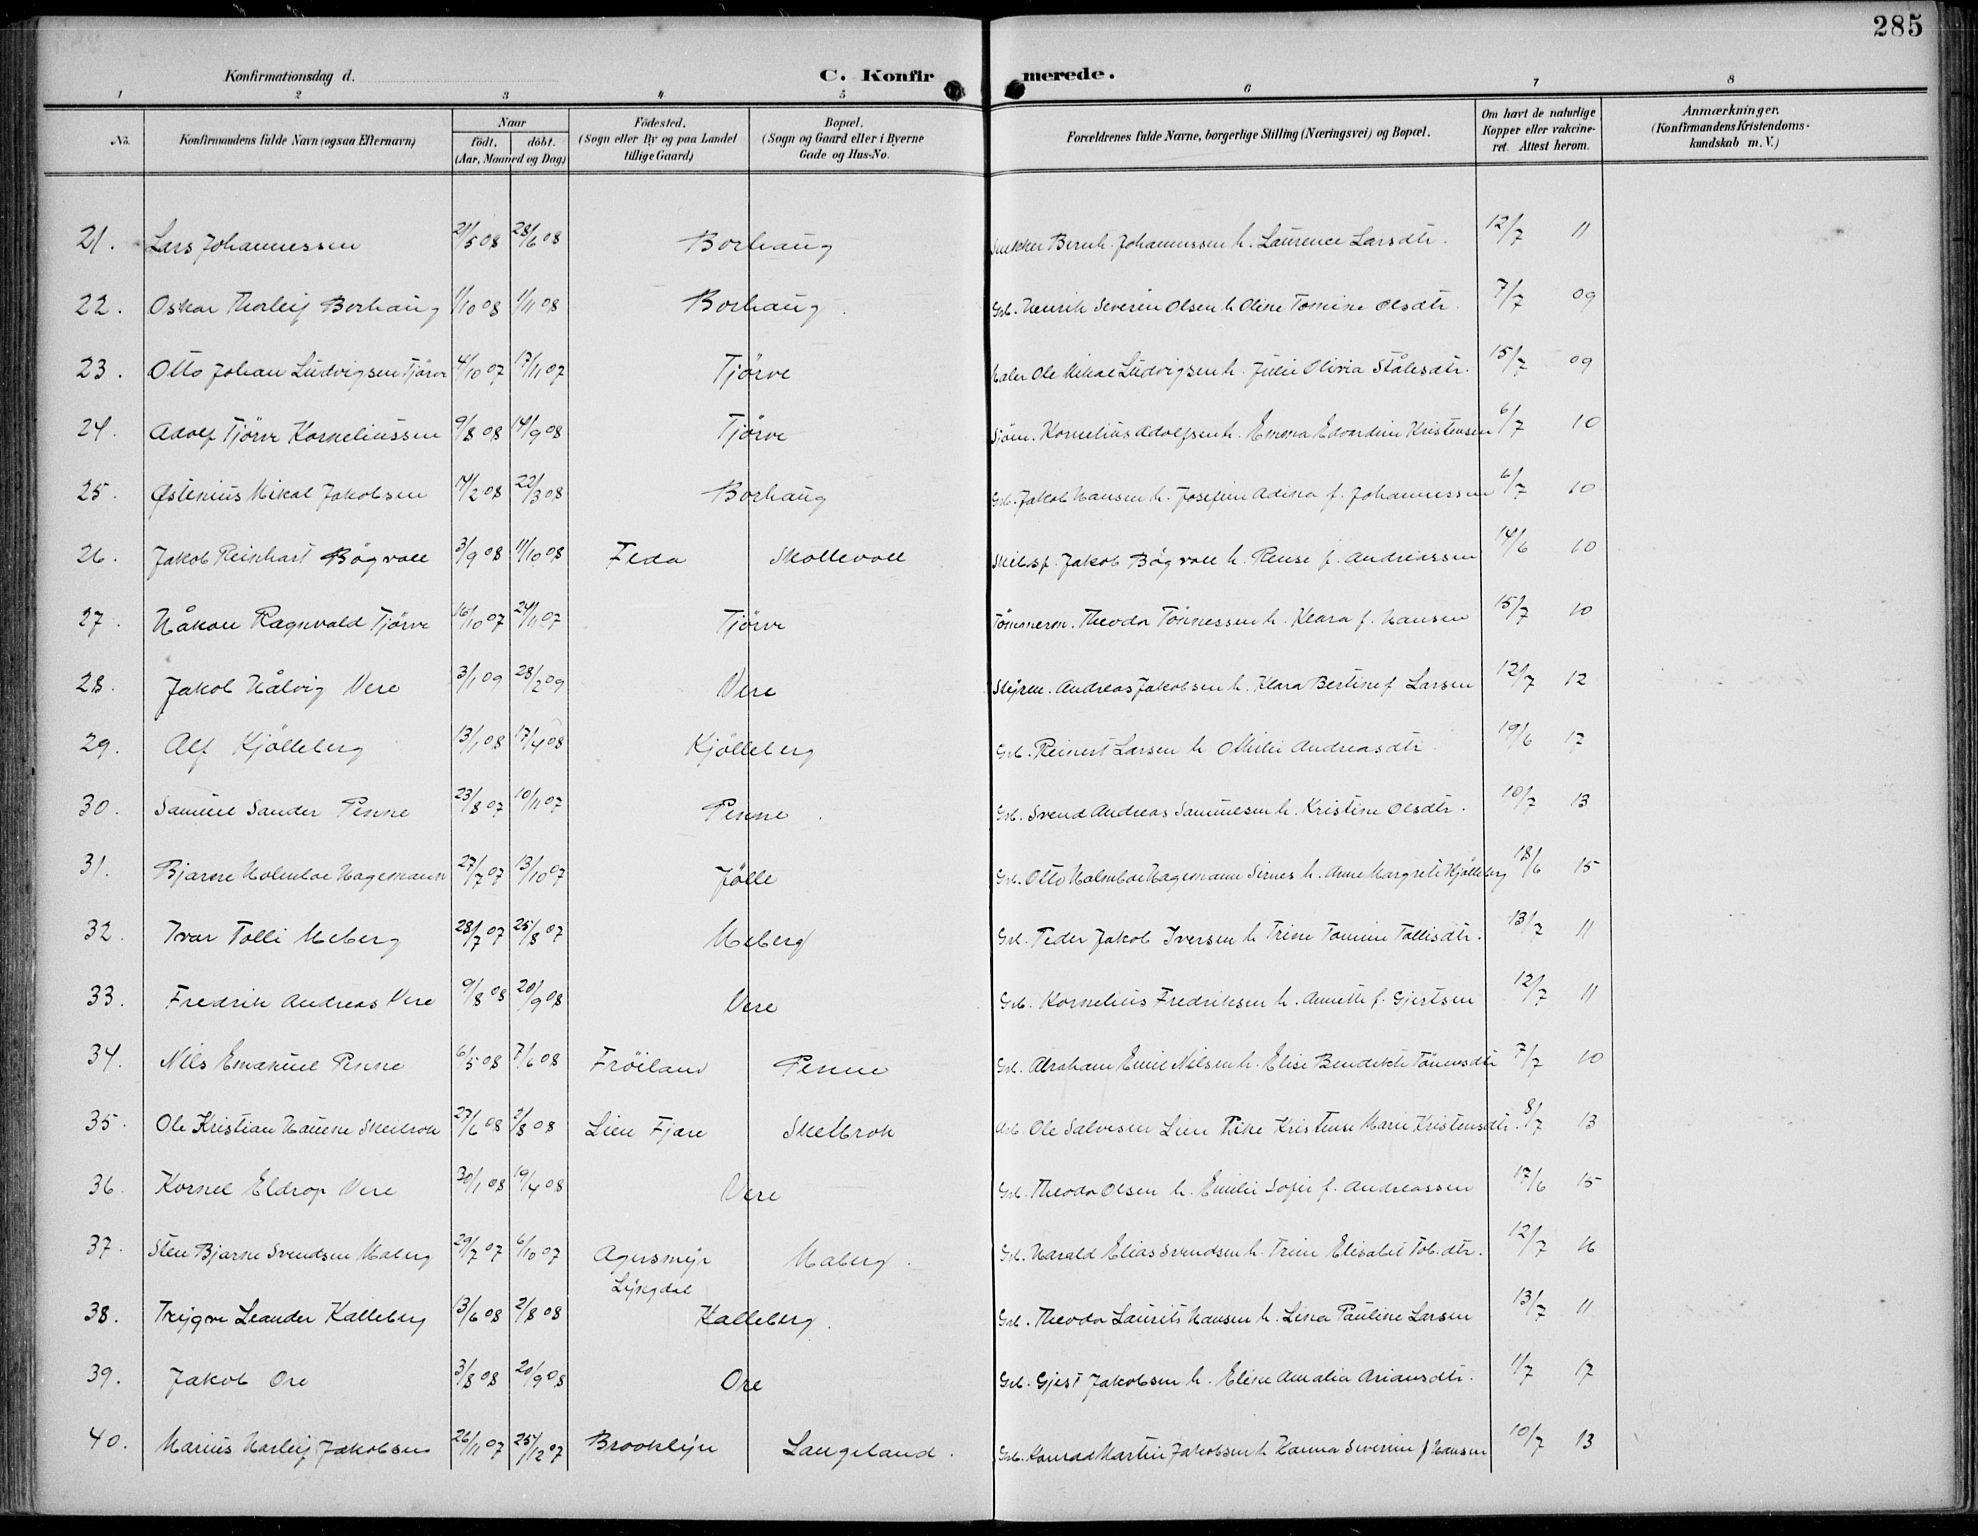 285
Konfirmationsdag d. C. Konfirmerede.
1 2 3 4 5 6 7 8
No. Konfirmandens fulde Navn (ogsaa Efternavn) Naar født. døbt. (Aar, Maaned og Dag) Fødested. (Sogn eller By og paa Landet tillige Gaard) Bopæl. (Sogn og Gaard eller i Byerne Gade og Hus-No. Forældrenes fulde Navne, borgerlige Stilling (Næringsvei) og Bopæl. Om havt de naturlige Kopper eller vakcineret. Attest herom. Anmærkninger. (Konfirmandens Kristendomskundskab m. V.)
21. Lars Johannessen 21/5 08 28/6 08 Borhaug Snekker Bernh. Johannessen h. Laurence Larsdtr. 12/7 11
22. Oskar Thorleif Borhaug 1/10 08 1/11 08 Borhaug Grb. Henrik Severin Olsen h Oline Tomine Olsdtr. 7/7 09
23. Otto Johan Ludvigsen Tjörve 4/10 07 17/11 07 Tjörve Maler Ole Mikal Ludvigsen h. Julie Olivia Ståhsdtr. 15/7 09
24. Adolf Tjörve Korneliussen 9/8 08 14/9 08 Tjörve Sjöm. Kornelius Adolfsen h. Emma Edvardine Kristensen 6/7 10
25. Østenius Mikal Jakobsen 14/2 08 22/3 08 Borhaug Grb. Jakob Hansen h. Josefine Adina f. Johannessen 6/7 10
26. Jakob Reinhart Bögvall 3/9 08 11/10 08 Feda Skollevoll Skibsf. Jakob Bögvall h. Rense f. Andreassen 14/6 10
27. Håkon Ragnvald Tjörve 16/10 07 24/11 07 Tjörve Tömmerm. Theodor Tönnessen h. Klara f. Hansen 15/7 10
28. Jakob Hålvig Vere 3/1 09 28/2 09 Vere Styrm. Andreas Jakobsen h. Klara Bertine f Larsen 12/7 12
29. Alf Kjölleberg 13/1 08 17/4 08 Kjölleberg Grb. Reinert Larsen h Otilie Andreasdtr 19/6 17
30. Samuel Sander Penne 23/8 07 10/11 07 Penne Grb. Svend Andreas Samuelsen h. Kristine Olsdtr. 10/7 13
31. Bjarne Holmboe Hagemann 27/7 07 13/10 07 Jölle Grb. Otto Holmboe Hagemann Sirnes h. Anne Margrete Kjölleberg 18/6 15
32. Ivar Tolli Meberg 28/7 07 25/8 07 Meberg Grb. Peder Jakob Iversen h Trine Tomine Tollisdtr. 13/7 11
33. Fredrik Andreas Vere 9/8 08 20/9 08 Vere Grb. Kornelius Fredriksen h. Annette f. Gjertsen 12/7 11
34. Nils Emanuel Penne 6/5 08 7/6 08 Fröiland Penne Grb. Abraham Emil Nilsen h. Elise Bendikte Tönnesdtr 7/7 10
35. Ole Kristian Hauene Skeibrok 27/6 08 2/8 08 Lien Fjære Skeibrok Ole Salvesen Lien Pike Kristense Marie Kristensdtr. 8/7 13
36. Kornel Eldrop Vere 30/1 08 19/4 08 Vere Grb. Theodor Olsen h. Emilie Sofie f. Andreassen 17/6 15
37. Sten Bjarne Svendsen Maberg 29/7 07 6/10 07 Agersmyr Maberg. Grb. Harald Elias Svendsen h. Trine Elisabet Tob.dtr. 12/7 16
Lyngdal
38. Trygve Leander Kalleberg 13/6 08 2/8 08 Kalleberg. Grb. Theodor Laurits Hansen h. Lina Pauline Larsen 13/7 11
39. Jakob Ore 3/8 08 20/9 08 Ore Grb. Gjert Jakobsen h. Eline Amalia Ariansdtr. 1/7 17
40. Marius Harleif Jakobsen 26/11 07 25/12 07 Brooklyn Langeland. Grb. Konrad Martin Jakobsen h Hanna Severine f Hansen 10/7 13